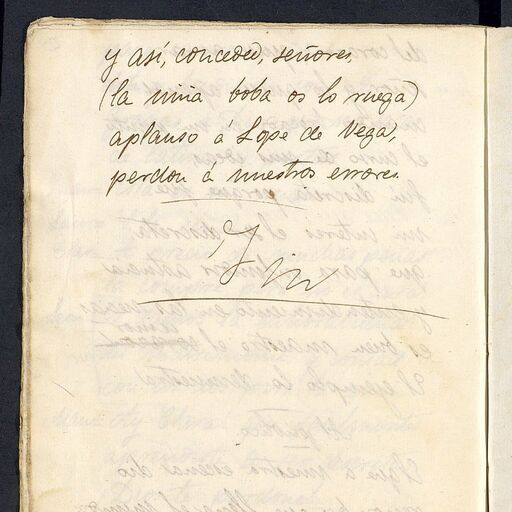 y así, conceded, señores,
(la niña boba os lo ruega)
aplauso á Lope de Vega,
perdon á nuestros errores.
Fin